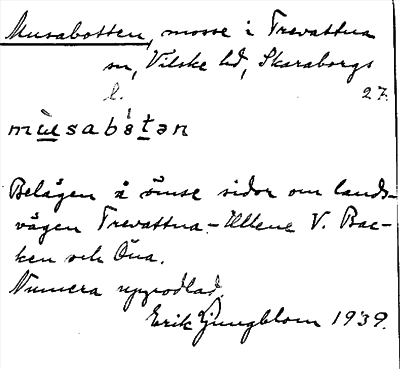 Musabotten, mosse i Trevattna
sn, Vilske hd, Skaraborgs
l. 27.
mùsabòtən
Belägen å ömse sidor om lands-
vägen Trevattna - Ullene V. Bac-
ken och Öna.
Numera uppodlad.
Erik Ljungblom 1939.